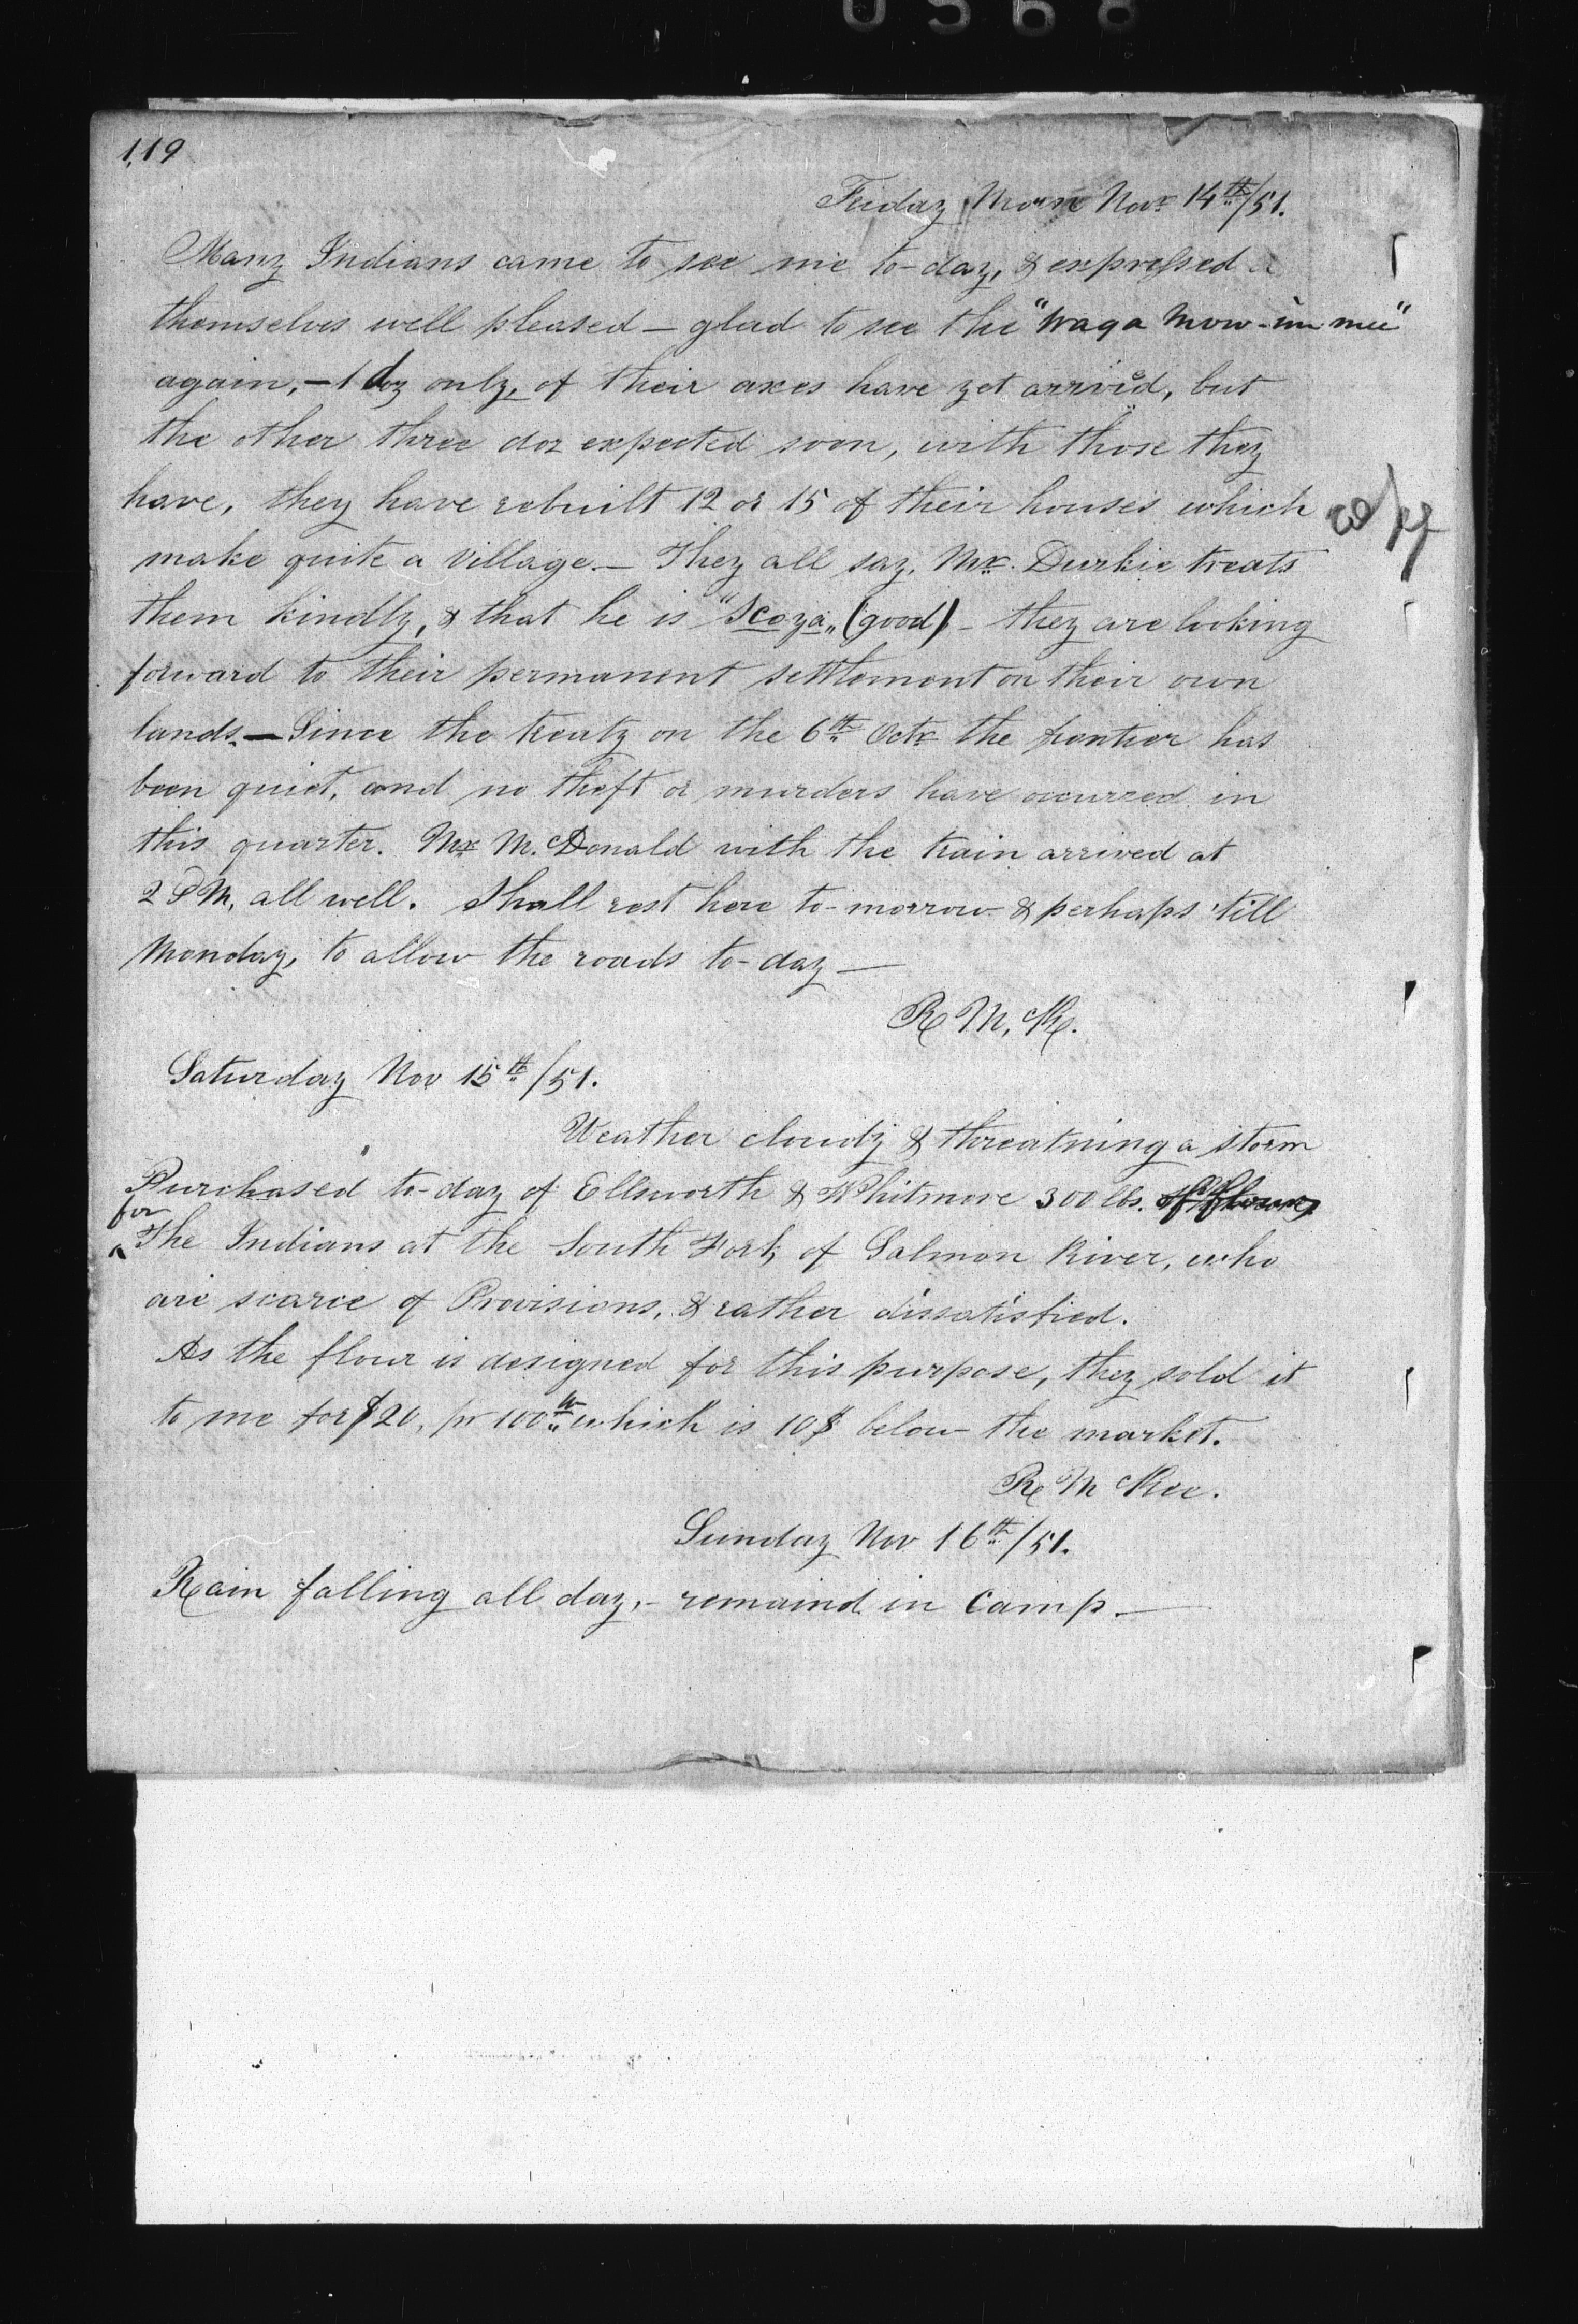 0568
119
Friday Morn Novr 14th/51.
Many Indians came to see me to-day, & expressed
themselves well pleased — glad to see the "Waga Mow-im mee"
again, — 1 doz only, of their axes have yet arrived, but
the other three doz expected soon, with those they
have, they have rebuilt 12 or 15 of their houses which
copy
make quite a village. — They all say, Mr. Durkie treats
them kindly, & that he is "Scoya" (good) — they are looking
forward to their permanent settlement on their own
lands. — Since the treaty on the 6th Octr the frontier has
been quiet, and no theft or murders have occurred in
this quarter. Mr McDonald with the train arrived at
2 PM, all well. Shall rest here to-morrow & perhaps 'till
Monday, to allow the roads to-day —
R McK.
Saturday Nov 15th/51.
Weather cloudy & threatning a storm
Purchased to-day of Ellsworth & Whitmore 300 lbs. of flour
for
The Indians at the South Fork of Salmon River, who
are scarce of Provisions, & rather dissatisfied.
As the flour is designed for this purpose, they sold it
to me for $20, pr 100 lb which is 10$ below the market.
R McKee.
Sunday Nov 16th/51.
Rain falling all day, — remaind in Camp. —